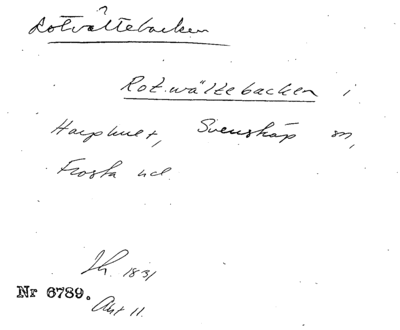 Rotvältebacken
Rot.wältebacken i
Harphult, Svensköp sn,
Frosta hd.
Lh. 1831
Nr 6789.
Akt 11.